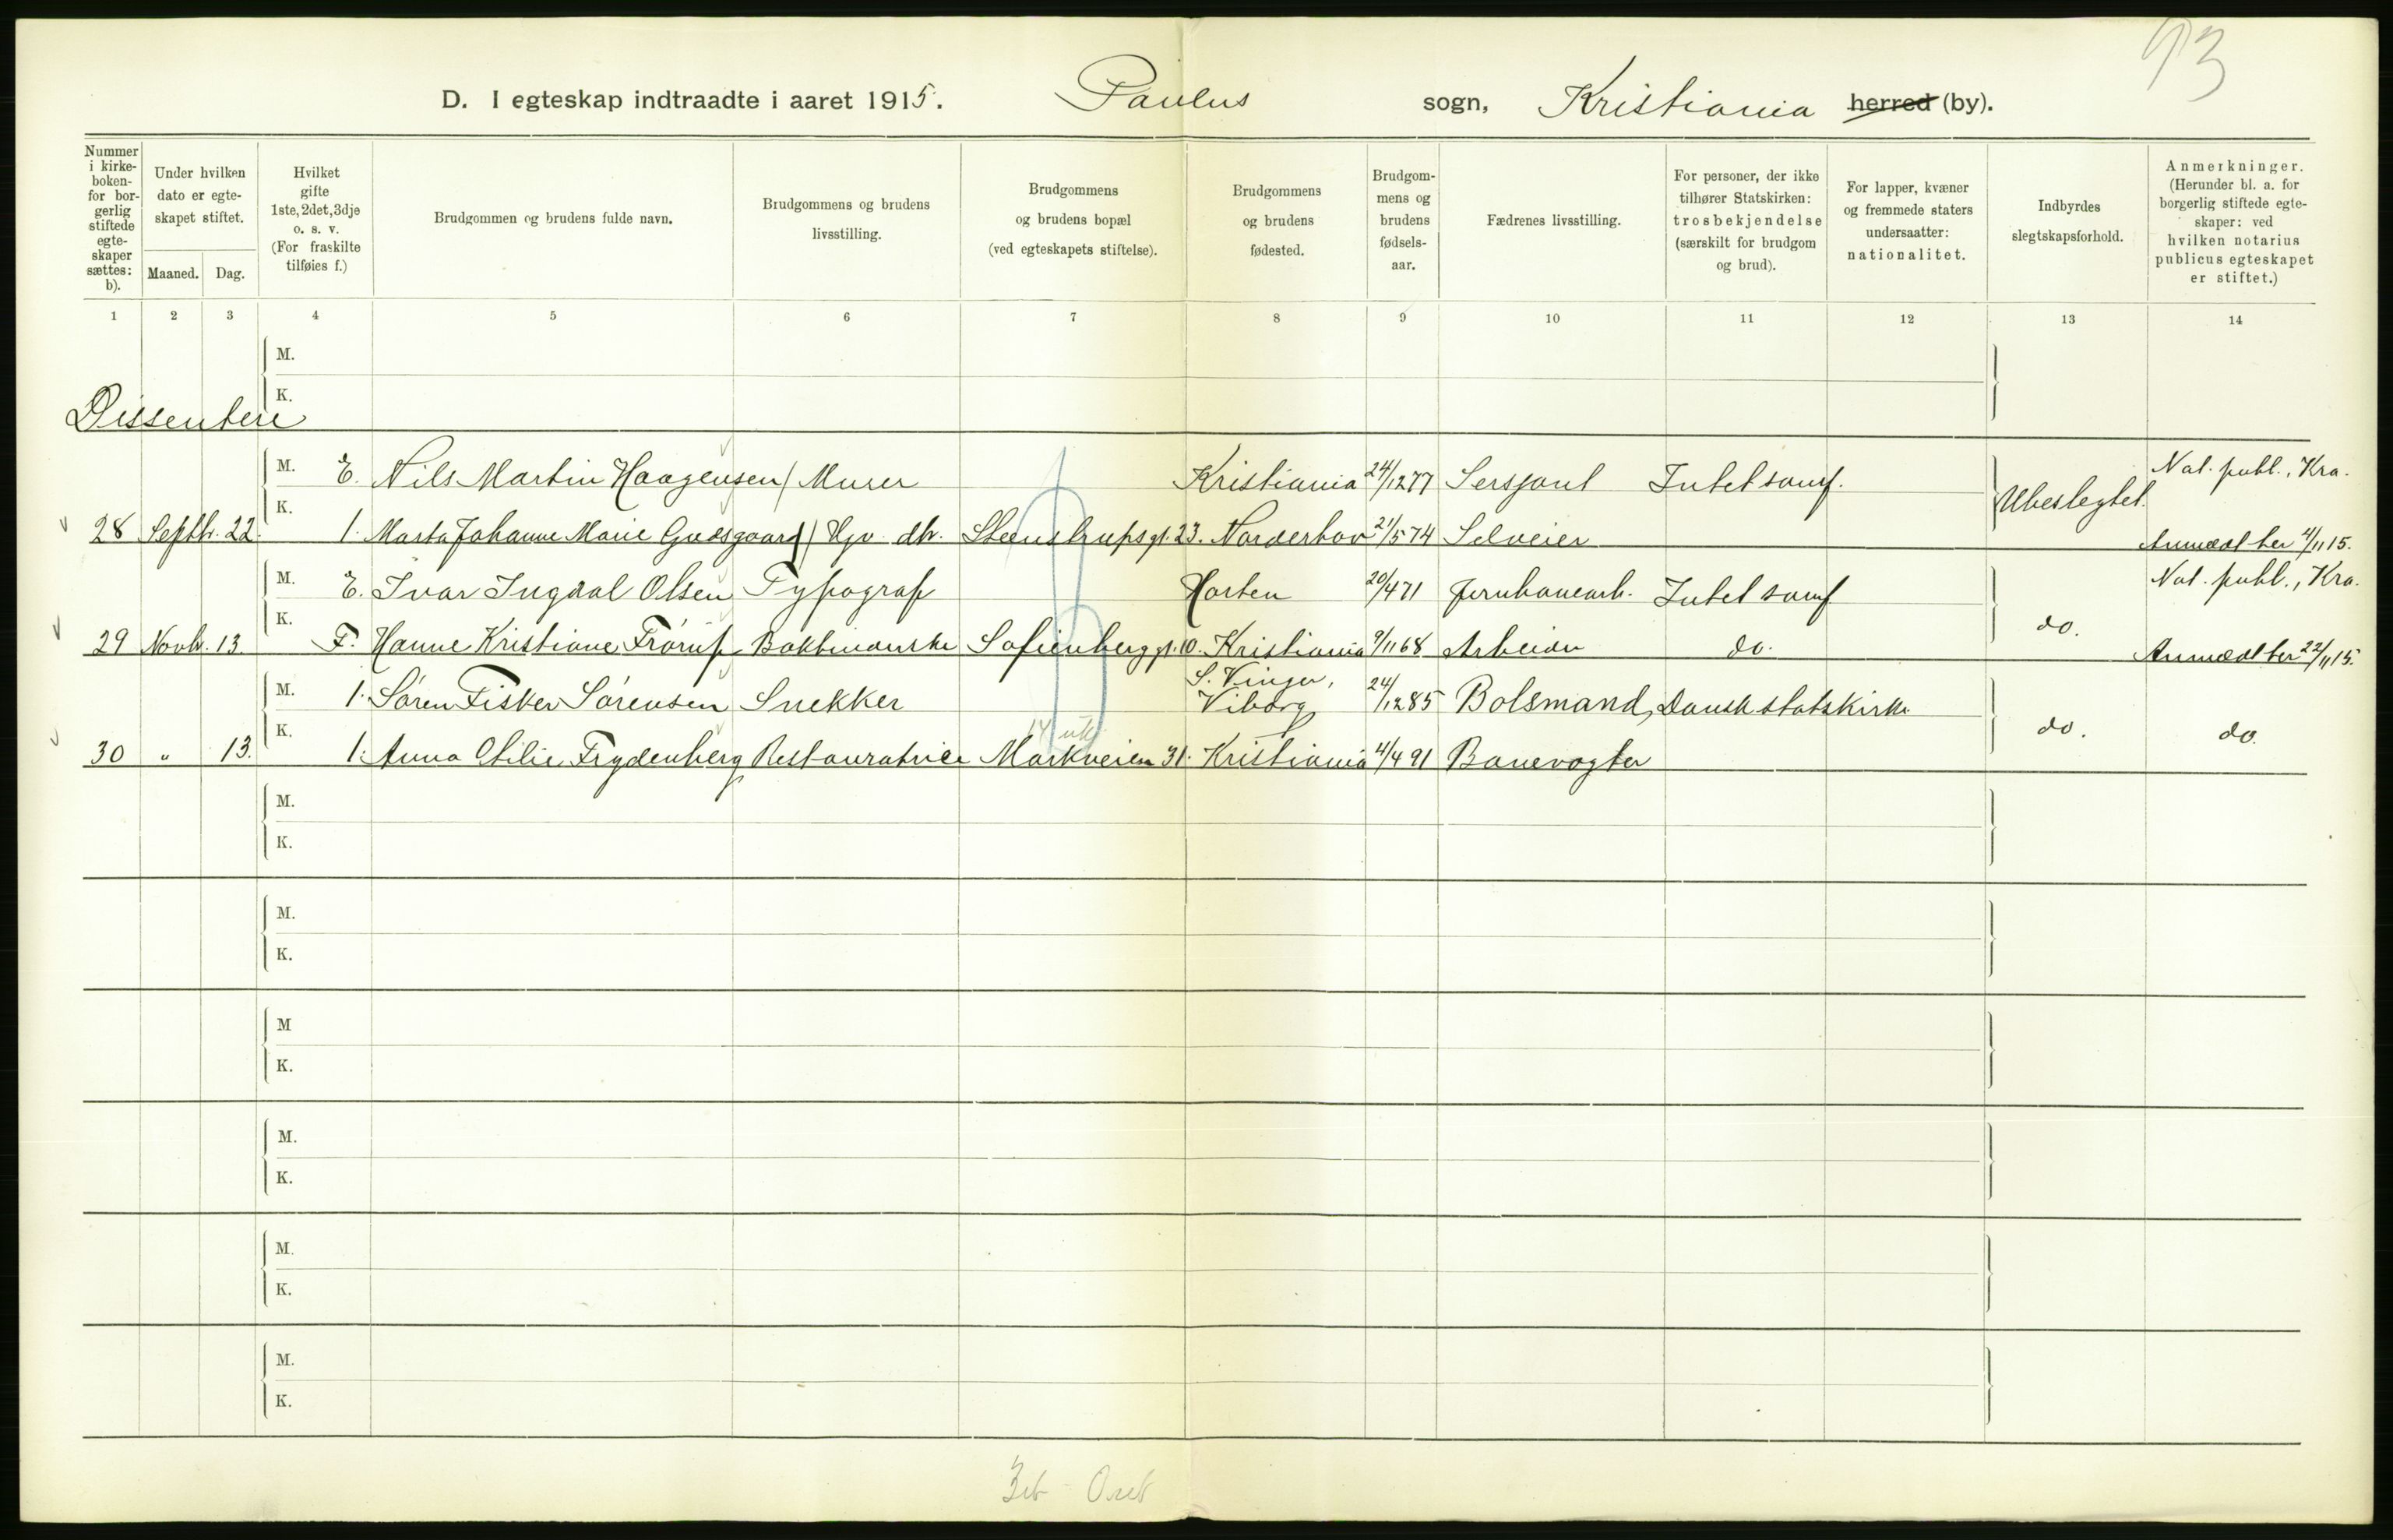 93
D. I egteskap indtraadte i aaret 1915. Paulus sogn, Kristiania herred (by).
Nummer i kirke-boken- for bor-gerlig stiftede egte-skaper sættes: b).
Under hvilken dato er egte-skapet stiftet.
Maaned. Dag.
Hvilket gifte 1ste, 2det, 3dje o. s. v. (For fraskilte tilføies f.)
Brudgommen og brudens fulde navn.
Brudgommens og brudens livsstilling.
Brudgommens og brudens bopæl (ved egteskapets stiftelse).
Brudgommens og brudens fødested.
Brudgom-mens og brudens fødsels-aar.
Fædrenes livsstilling.
For personer, der ikke tilhører Statskirken: trosbekjendelse (særskilt for brudgom og brud).
For lapper, kvæner og fremmede staters undersaatter: nationalitet.
Indbyrdes slegtskapsforhold.
Anmerkninger. (Herunder bl. a. for borgerlig stiftede egte-skaper: ved hvilken notarius publicus egteskapet er stiftet.)
1 2 3 4 5 6 7 8 9 10 11 12 13 14
M.
K.
Dissentere
M. E. Nils Martin Haagensen Murer Kristiania 24/12 77 Sersjant Intet samf. Not. publ., Kra.
K. Ubeslegtet.
28 Septbr. 22. 1. Marta Johanne Marie Gudsgaard Hjv. dtr. Steenstrupsgt. 23. Norderhov 21/5 74 Selveier Anmeldt her 4/11 15.
M. E. Ivar Ingdal Olsen Typograf Horten 20/4 71 Jernbanearb. Intet samf Not. publ., Kra.
K. do.
29 Novbr. 13. F. Hanne Kristiane Frørup Bokbinderske Sofienberggt. 10. Kristiania 9/11 68 Arbeider do. Anmeldt her 22/11 15.
S. Vinger,
M. 1. Søren Fisker Sørensen Snekker Viborg 24/12 85 Bolsmand, Dansk statskirke
K. 14 uk. do. do.
30 " 13. 1. Anna Otilie Frydenberg Restauratrice Markveien 31. Kristiania 4/4 91 Banevogter
M.
K.
M.
K.
M
K.
M.
K.
M.
K.
M.
K.